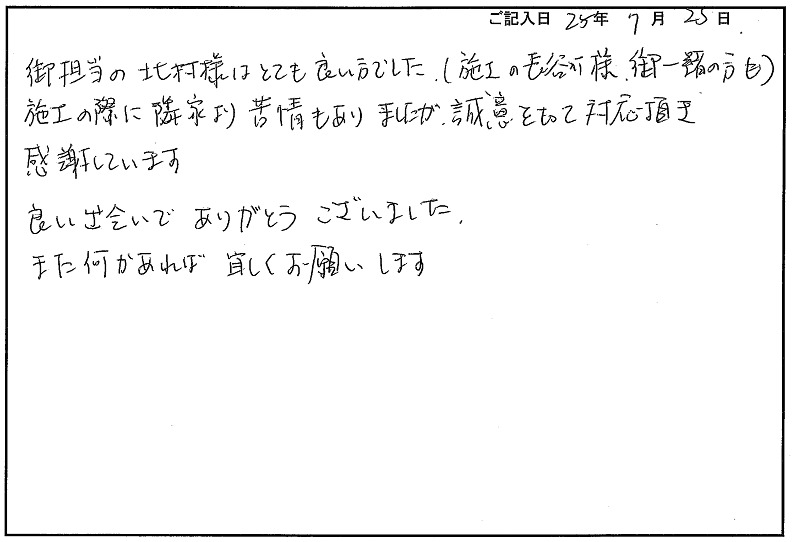 ご記入日 25年 7月 25日
御担当の北村様はとても良い方でした.(施工の長谷川様、御一緒の方も)
施工の際に隣家より苦情もありましたが、誠意をもって対応頂き
感謝しています
良い出会いで ありがとう ございました.
また何かあれば 宜しくお願いします